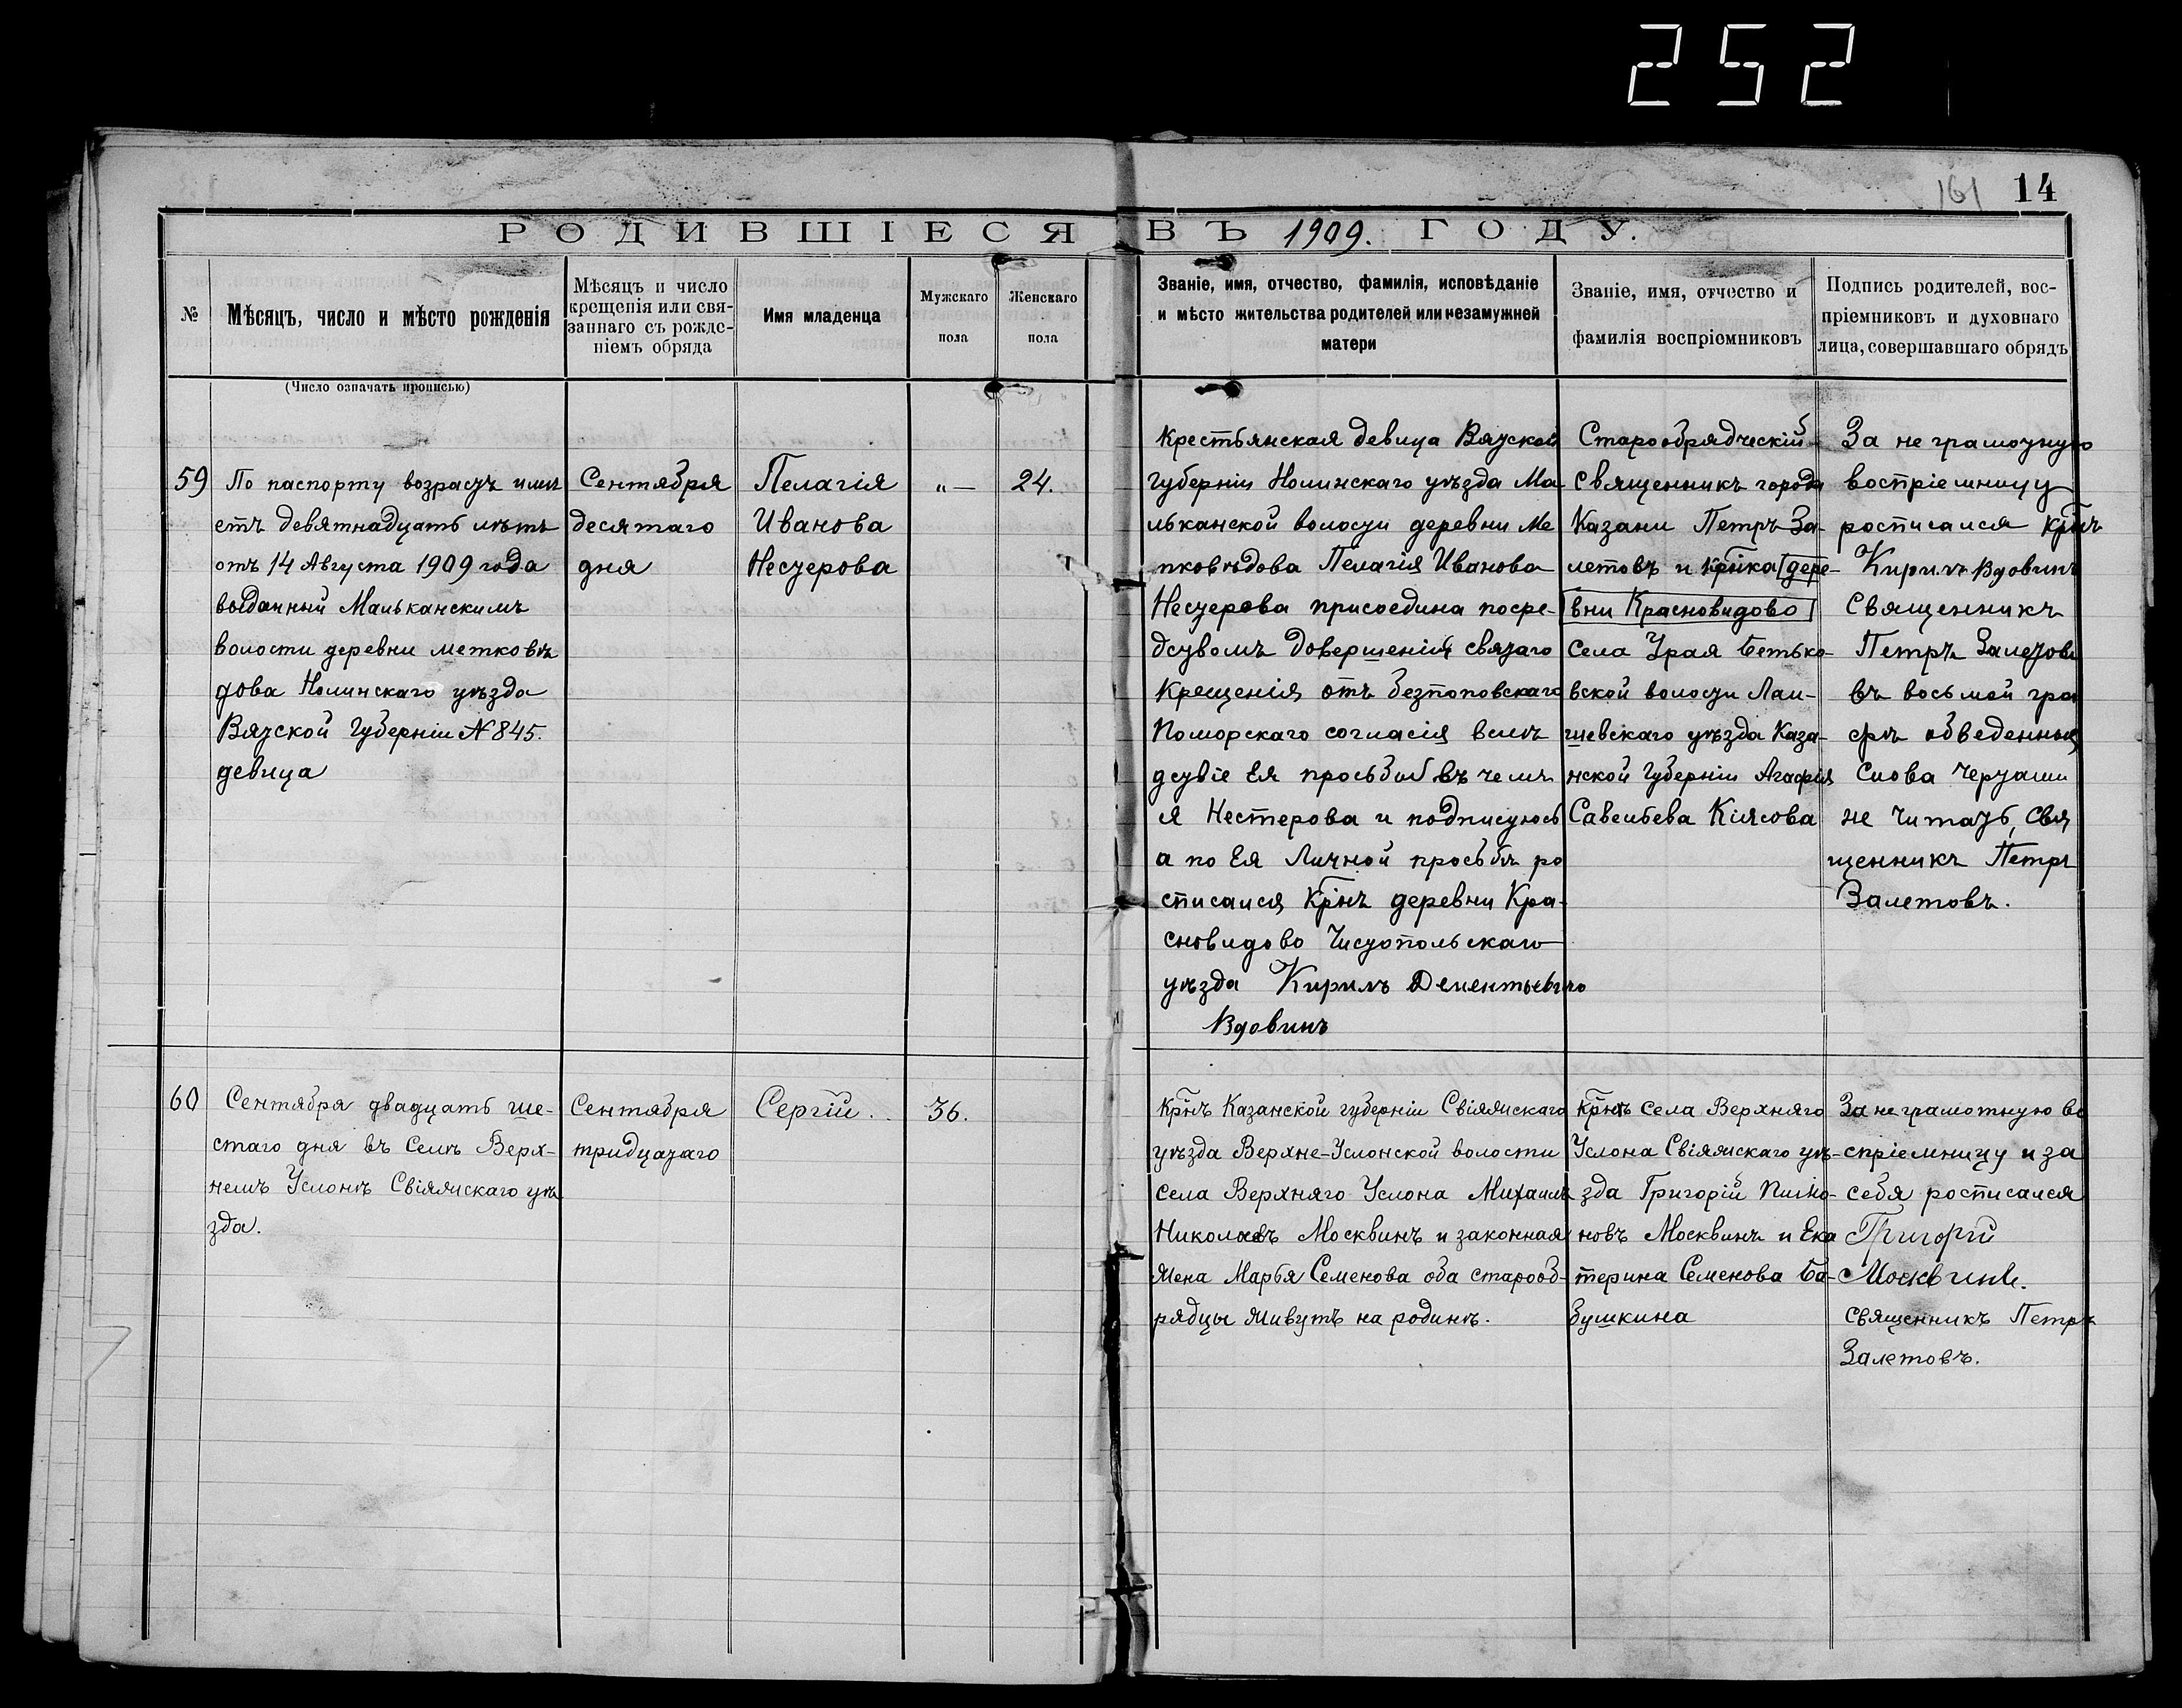 252
161 14
РОДИВШІЕСЯ ВЪ 1909. ГОДУ.
№
Мѣсяцъ, число и мѣсто рожденія
(Число означать прописью)
Мѣсяцъ и число
крещенія или свя-
заннаго съ рожде-
ніемъ обряда
Имя младенца
Мужскаго
пола
Женскаго
пола
Званіе, имя, отчество, фамилія, исповѣданіе
и мѣсто жительства родителей или незамужней
матери
Званіе, имя, отчество и
фамилія воспріемниковъ
Подпись родителей, вос-
пріемниковъ и духовнаго
лица, совершавшаго обрядъ
59
По паспорту возрастъ имѣ
етъ девятнадцать лѣтъ
отъ 14 Августа 1909 года
выданный Мальканскимъ
волости деревни метковѣ
дова Нолинскаго уѣзда
Вятской Губерніи № 845.
девица
Сентября
десятаго
дня
Пелагія
Иванова
Нестерова
„—
24.
Крестьянская девица Вятской
губерніи Нолинскаго уѣзда Ма
льканской волости деревни Ме
тковѣдова Пелагія Иванова
Нестерова присоедина посре-
дствомъ довершенія святаго
крещенія отъ безпоповскаго
Поморскаго согласія вслѣ
дствіе Ея просьбы въ чемъ
я Нестерова и подписуюсь
а по Ея Личной просьбѣ ро
списался Крнъ деревни Кра-
сновидово Чистопольскаго
уѣзда Кирилъ Дементьевичо
Вдовинъ
Старообрядческій
священникъ города
Казани Петръ За-
летовъ и крнка дере-
вни Красновидово
Села Урая Бетько-
вской волости Лаи-
шевскаго уѣзда Каза-
нской Губерніи Агафія
Савельева Кілсова
За не грамотную
воспріемницу
росписался крнъ
Кирилъ Вдовинъ
Священникъ
Петръ Залетовъ
въ восьмой гра
фѣ обведенныя
Слова Черталии
не читать, свя
щенникъ Петръ
Залетовъ.
60
Сентября двадцать ше-
стаго дня въ Селѣ Верх-
немъ Услонѣ Свіяжскаго уѣ
зда.
Сентября
тридцатаго
Сергій.
36.
Крнъ Казанской губерніи Свіяжскаго
уѣзда Верхне-Услонской волости
села Верхняго Услона Михаилъ
Николаевъ Москвинъ и законная
жена Марья Семенова оба старооб-
рядцы живутъ на родинѣ.
Крнъ села Верхняго
Услона Свіяжскаго уѣ-
зда Григорій Пило-
новъ Москвинъ и Ека
терина Семенова Ба-
бушкина
За не грамотную во
спріемницу и за
себя росписался
Григорій
Москвинъ.
священникъ Петръ
Залетовъ.